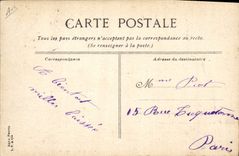 CARTE POSTALE
Tous les pays étrangers n'acceptent pas la correspondance au recto.
(Se renseigner à la poste).
Correspondance
Adresse du destinataire
A bientôt
milles baisers
Mme Piot
15 Rue
Paris